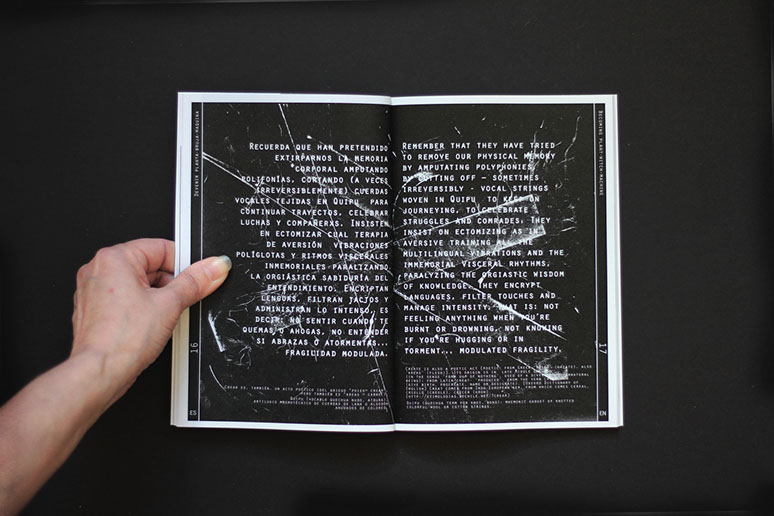 Devenir planta-bruja-maquina
Recuerda que han pretendido
extirparnos la memoria
corporal amputando
polifonías, cortando (a veces
irreversiblemente) cuerdas
vocales tejidas en Quipu para
continuar trayectos, celebrar
luchas y compañeras. Insisten
en ectomizar cual terapia
de aversión vibraciones
políglotas y ritmos viscerales
inmemoriales paralizando
la orgiástica sabiduría del
entendimiento. Encriptan
lenguas, filtran tactos y
administran lo intenso, es
decir: no sentir cuando te
quemas o ahogas, no entender
si abrazas o atormentas...
fragilidad modulada.
Crear es, también, un acto poético (del griego
Quipu (vocablo quechua nudo, atadura).
artilugio mnemotécnico de cuerdas de lana o algodón
anudados de colores
16
ES
Becoming plant-witch-machine
Remember that they have tried
to remove our physical memory
by amputating polyphonies
by cutting off - sometimes
irreversibly - vocal strings
woven in Quipu to keep on
journeying, to celebrate
struggles and comrades. They
insist on ectomizing as in
aversive training all the
multilingual vibrations and the
immemorial visceral rhythms,
paralyzing the orgiastic wisdom
of knowledge. They encrypt
languages, filter touches and
manage intensity, that is: not
feeling anything when you're
burnt or drowning, not knowing
if you're hugging or in
torment... modulated fragility.
Create is also a poetic act
Quipu (Quechua term for knot, bond): mnemonic gadget of knotted
colorful wool or cotton strings.
17
EN